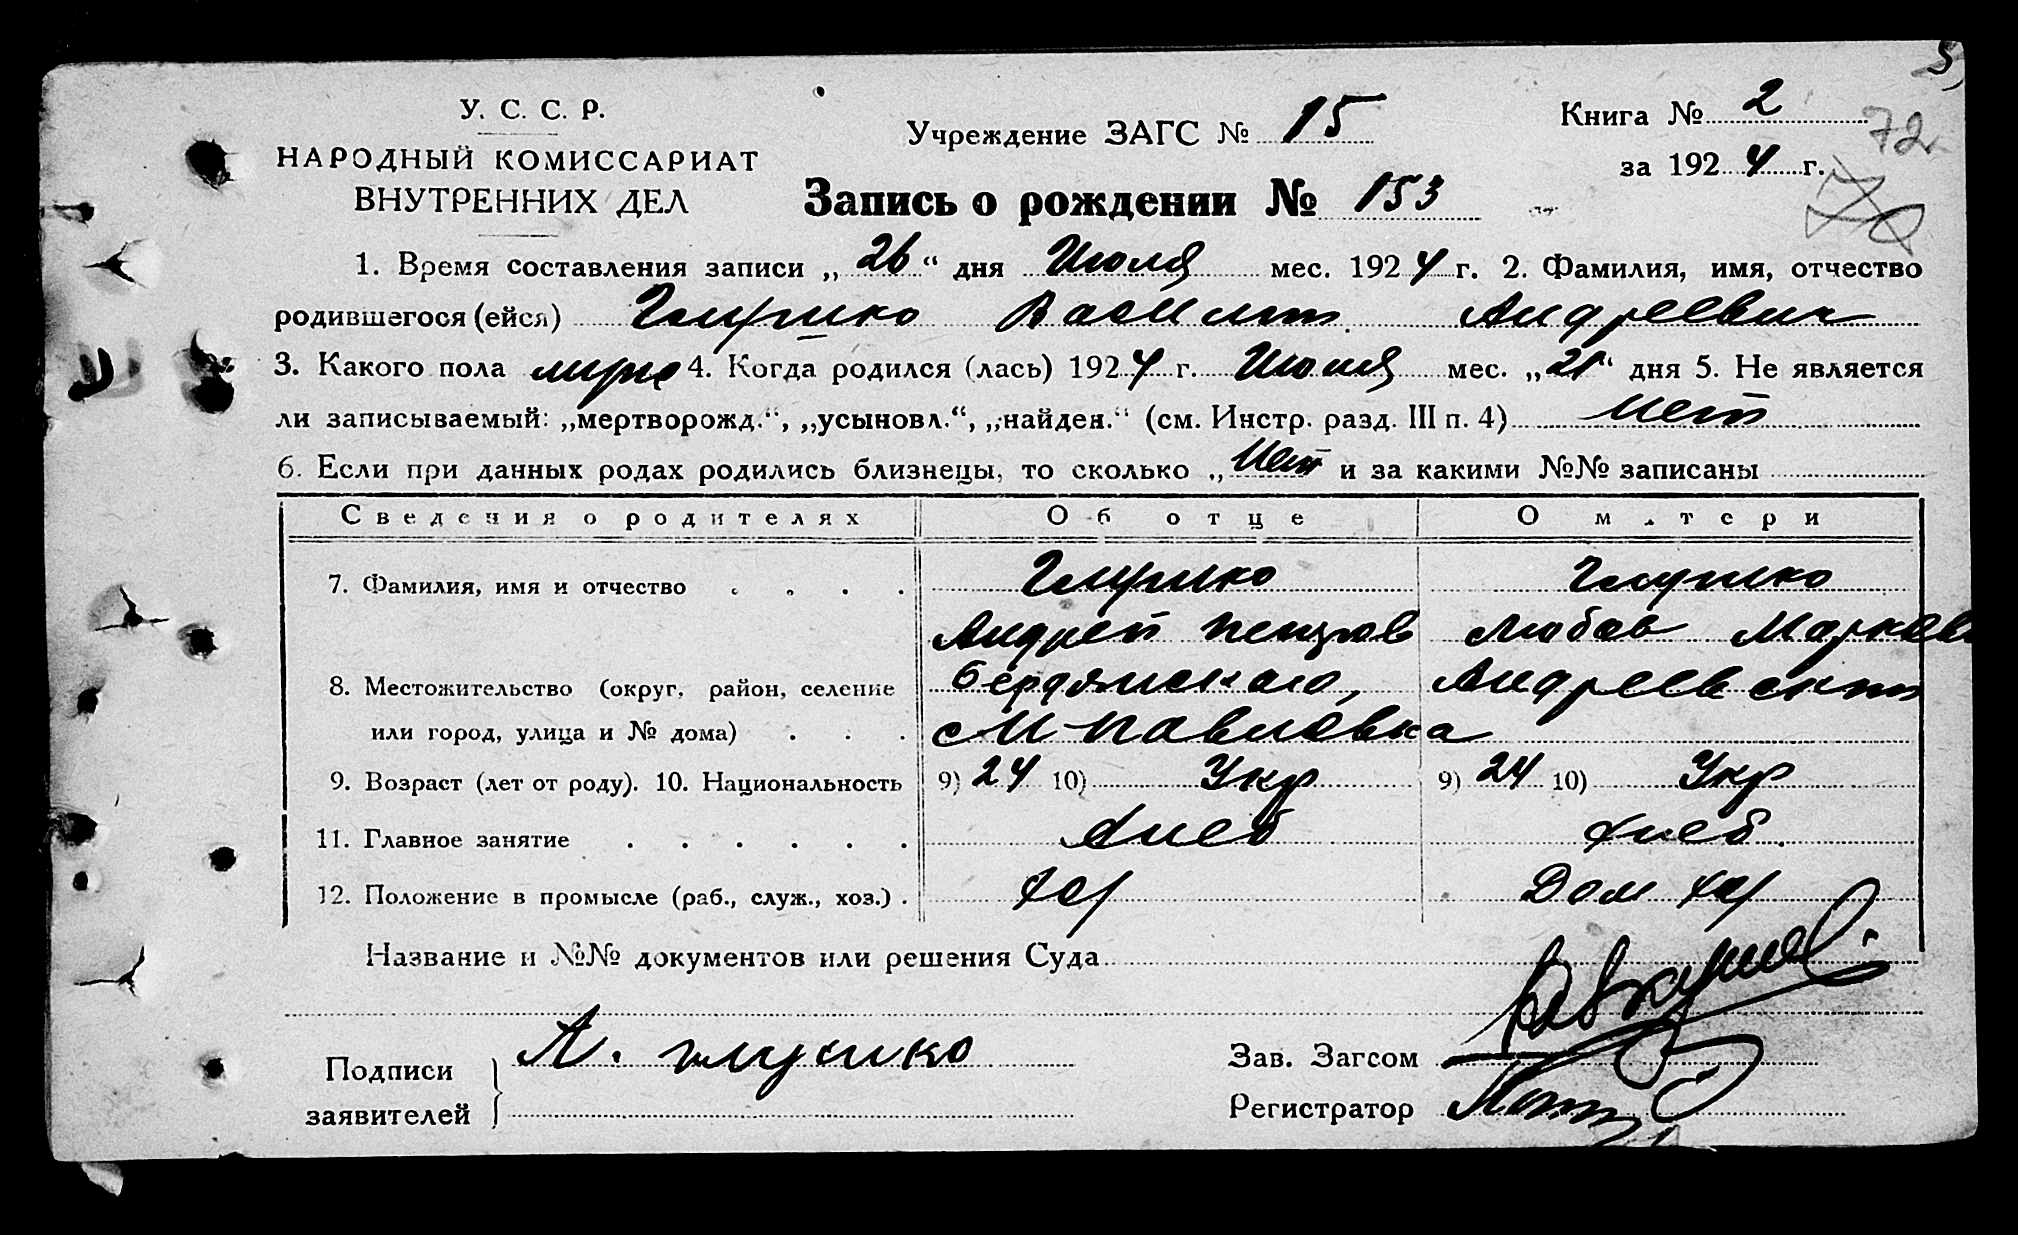 У. С. С. Р.
НАРОДНЫЙ КОМИССАРИАТ
ВНУТРЕННИХ ДЕЛ
Учреждение ЗАГС № 15
Книга № 2
72
за 1924 г.
Запись о рождении № 153
1. Время составления записи „ 26 “ дня Июля мес. 1924 г. 2. Фамилия, имя, отчество
родившегося (ейся) Глушко Василий Андреевич
3. Какого пола муже 4. Когда родился (лась) 1924 г. Июля мес. „21“ дня 5. Не является
ли записываемый: „мертворожд.“, „усыновл.“, „найден.“ (см. Инстр. разд. III п. 4) Нет
6. Если при данных родах родились близнецы, то сколько „ Нет и за какими №№ записаны
Сведения о родителях Об отце О матери
7. Фамилия, имя и отчество . . . . Глушко Глушко
Андрей Любов
8. Местожительство (округ, район, селение Бердянского, Андреевский
или город, улица и № дома) . . . с М-Павловка
9. Возраст (лет от роду). 10. Национальность 9) 24 10) Укр 9) 24 10) Укр
11. Главное занятие . . . . . . Хлеб Хлеб
12. Положение в промысле (раб., служ., хоз.) . Хоз Дом хоз
Название и №№ документов или решения Суда
Подписи
заявителей
А. Глушко
Зав. Загсом
Регистратор